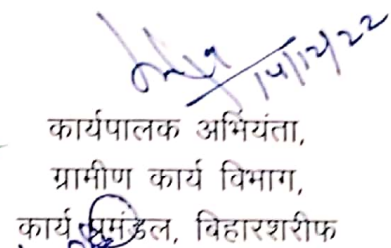 14/12/22
कार्यपालक अभियंता,
ग्रामीण कार्य विभाग,
कार्य प्रमंडल, बिहारशरीफ